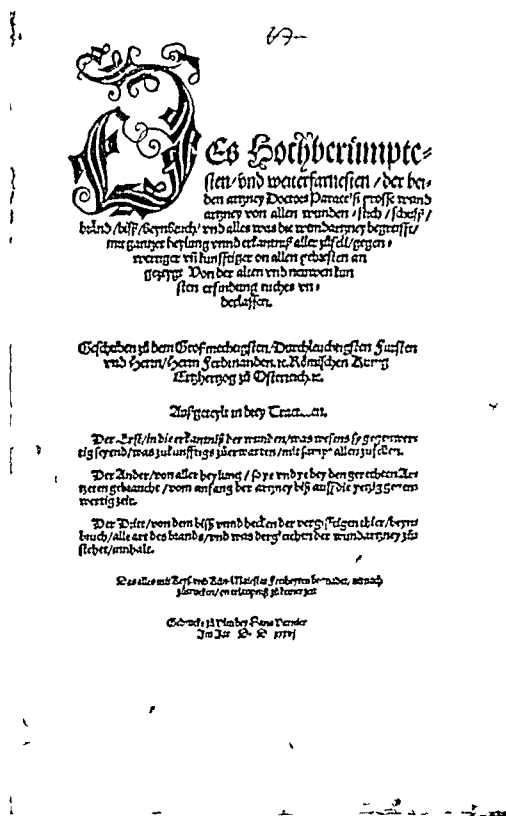 Des Hochberümpte⸗
sten/vnd weiterfarnesten/der bei⸗
den artzney Doctors Paracelsi grosse wund
artzney von allen wunden/stich/schüss/
bränd/biss/beynbrüch/vnd alles was die wundartzney begreifft/
mit gantzer heylung vnnd erkantniß aller zůfell/gegen⸗
wertiger vñ kunfftiger on allen gebresten an
gezeygt. Von der alten vnd nauwen kun
sten erfindung nichts vn⸗
derlassen.
Geschriben zů dem Großmechtigsten/Durchleuchtigsten Fursten
vnd Herrn/Herrn Ferdinanden.ꝛc. Römischen Kunig
Ertzhertzog zů Osterreich.ꝛc.
Außgeteylt in drey Tractaten.
Der Erst/in die erkantniß der wunden/was wesens sy gegenwer
tig seyend/was zukunfftigs zůerwarten/mit sampt allen zufellen.
Der Ander/von aller heylung/so ye vnd ye bey den gerechten Artz
tzeten gebraucht/vom anfang der artzney biß auff die yetz gegen
wertig zeit.
Der Dritt/von dem biß vnnd hecken der vergifftigen thier/beyn
bruch/alle art des brands/vnd was dergleichen der wundartzney zů
stehet/innhalt.
Getruckt zů Vlm bey Hans Varnier
Im Jar